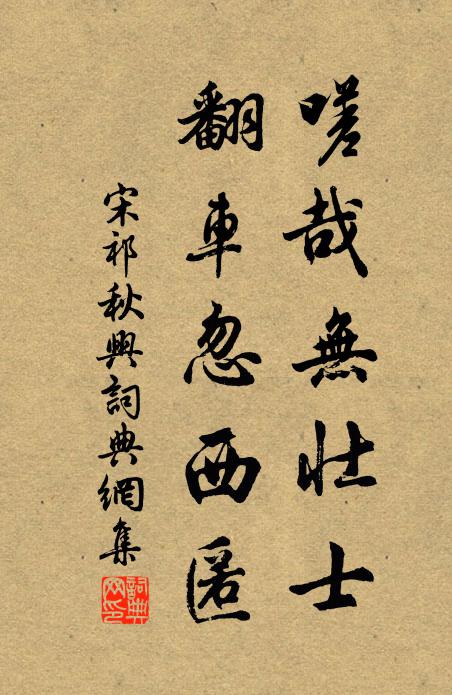 嗟哉無壯士
翻車忽西匿
宋祁秋興詞典網集
詞典网印